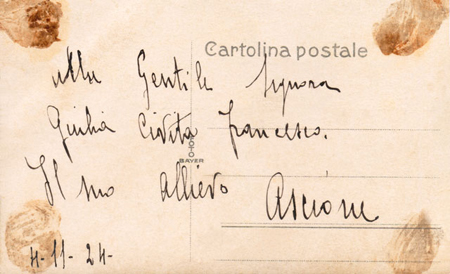 Cartolina postale
Alla Gentile Signora
Giulia Civita Francesco.
FOTO
BAYER
Il suo Allievo
Ascione
4-11-24-